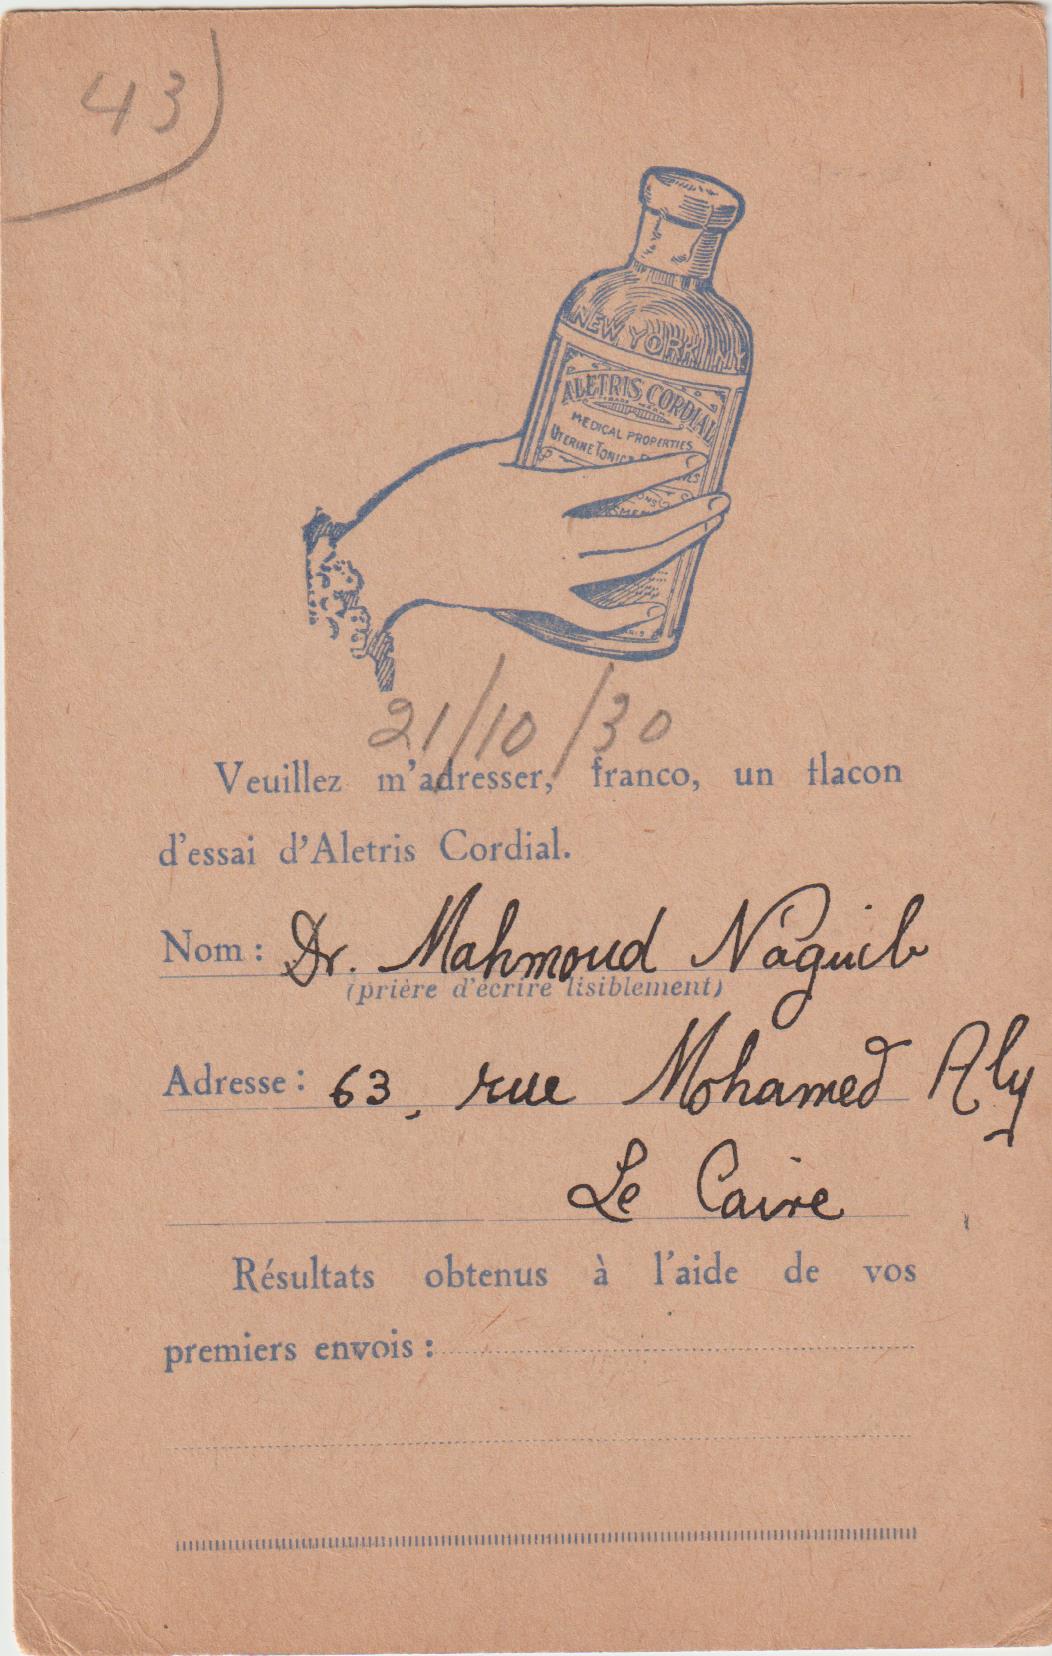 43
NEW YORK N.Y.
ALETRIS CORDIAL
TRADE MARK
MEDICAL PROPERTIES
UTERINE TONIC
21/10/30
Veuillez m'adresser, franco, un flacon
d'essai d'Aletris Cordial.
Nom : Dr. Mahmoud Naguib
(prière d'écrire lisiblement)
Adresse : 63, rue Mohamed Aly
Le Caire
Résultats obtenus à l'aide de vos
premiers envois :